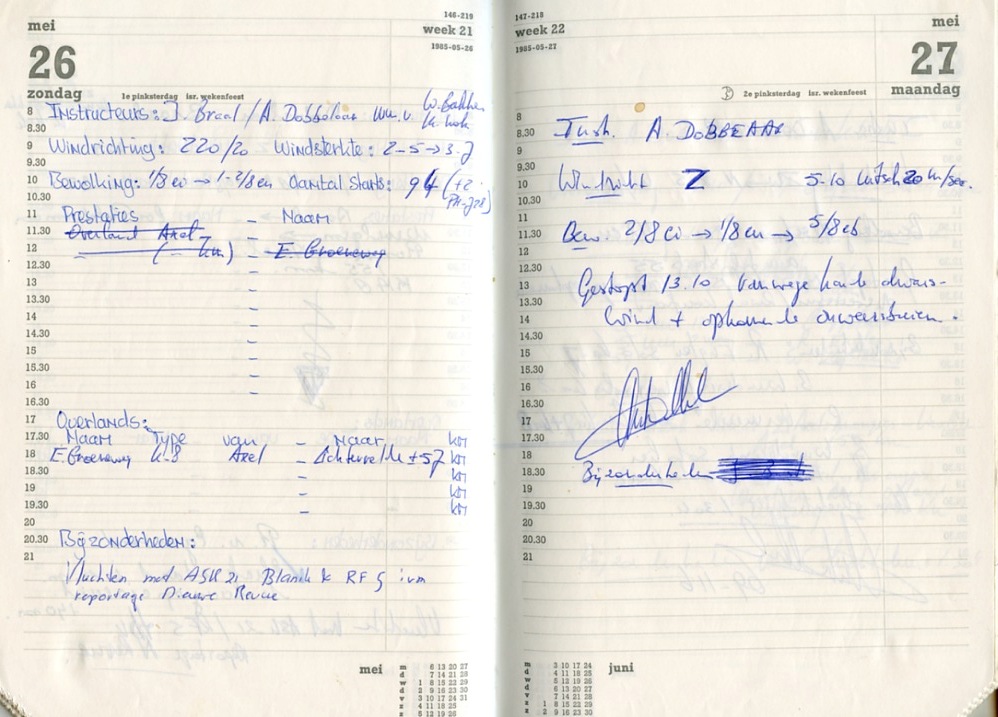 146-219
mei
week 21
1985-05-26
26
zondag
1e pinksterdag isr. wekenfeest
8 Instructeurs: J. Braal / A. Dobbelaar
8.30
9 Windrichting: 220/20 Windsterkte: 2-5 → 3-7
9.30
10 Bewolking: 1/8 cu → 1-2/8 cu Aantal starts: 94 (+2
10.30
11 Prestaties - Naam
11.30 Overland Axel
12 (- km) - E. Groeneweg
12.30 -
13 -
13.30 -
14 -
14.30 -
15 -
15.30 -
16 -
16.30
17 Overlands:
17.30 Naam Type van - Naar km
18 E. Groeneweg K-8 Axel - ± 57 km
18.30 - km
19 - km
19.30 - km
20
20.30 Bijzonderheden:
21
Vluchten met ASK 21 Blanik & RF 5 ivm
reportage Nieuwe Revue
mei
m 6 13 20 27
d 7 14 21 28
w 1 8 15 22 29
d 2 9 16 23 30
v 3 10 17 24 31
z 4 11 18 25
z 5 12 19 26
147-218
week 22
mei
1985-05-27
27
maandag
2e pinksterdag isr. wekenfeest
8
8.30 Instr. A. DOBBELAAR
9
9.30
10 Windricht Z 5-10 m/sec.
10.30
11
11.30 Bew. 2/8 cu → 1/8 cu → 5/8 cb
12
12.30
13 Gestopt 13.10 Vanwege harde dwars-
13.30
14 wind + opkomende onweersbuien.
14.30
15
15.30
16
16.30
17
17.30
18
18.30 Bijzonderheden
19
19.30
20
20.30
21
juni
m 3 10 17 24
d 4 11 18 25
w 5 12 19 26
d 6 13 20 27
v 7 14 21 28
z 1 8 15 22 29
z 2 9 16 23 30